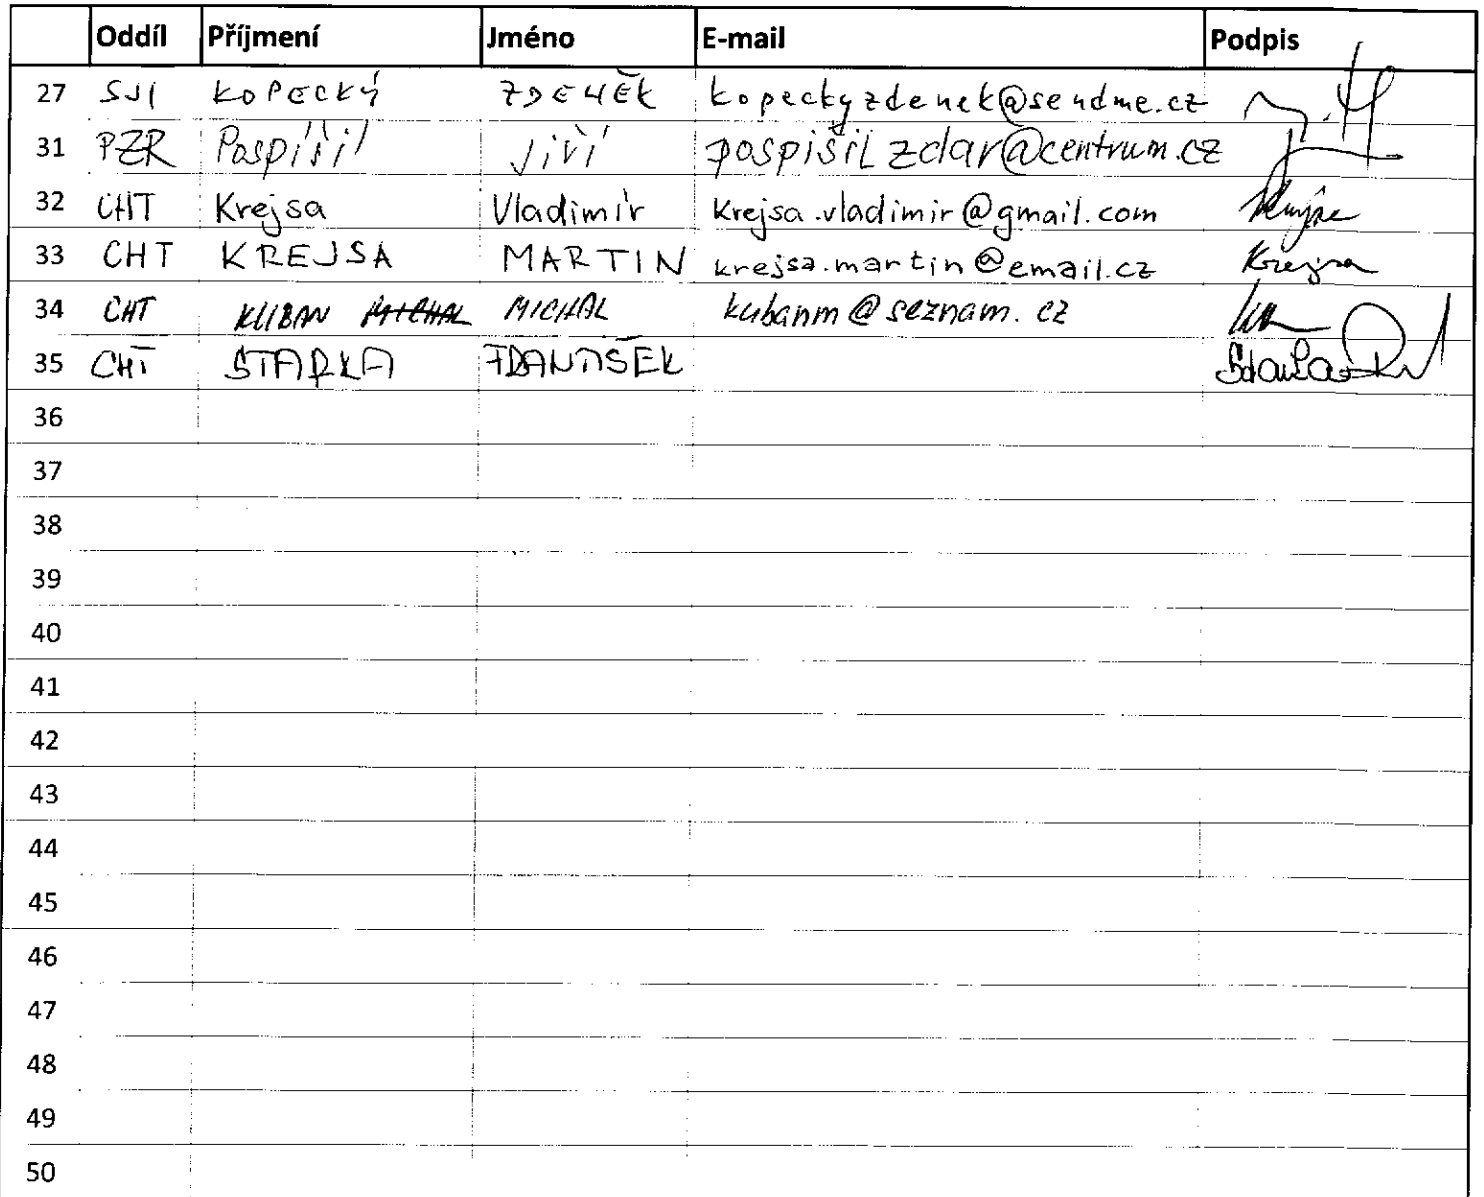 Oddíl Příjmení Jméno E-mail Podpis
27 SJI KOPECKÝ ZDENĚK kopeckyzdenek@sendme.cz
31 PZR Pospíšil Jiří pospišilzdar@centrum.cz
32 CHT Krejsa Vladimír krejsa.vladimir@gmail.com
33 CHT KREJSA MARTIN krejsa.martin@email.cz Krejsa
34 CHT KUBAN MICHAL MICHAL kubanm@seznam.cz
35 CHT STARKA
36
37
38
39
40
41
42
43
44
45
46
47
48
49
50